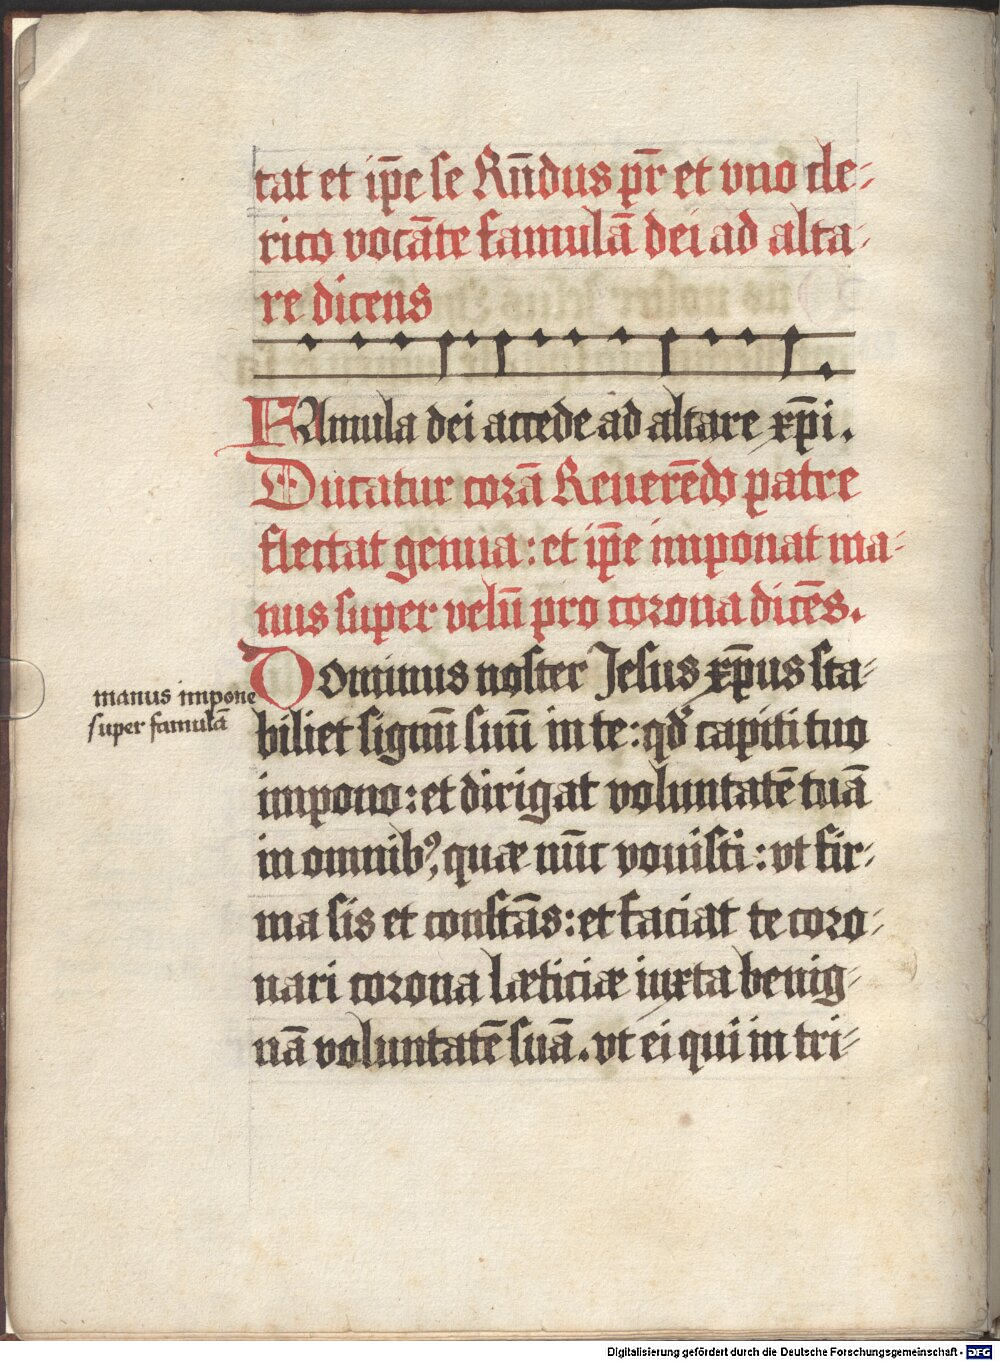 tat et ip̄e se Rn̄dus pr̄ et vno cle-
rico vocāte famulā dei ad alta-
re dicens
FAmula dei accede ad altare xp̄i.
Ducatur corā Reuerēdo patre
flectat genua: et ip̄e imponat ma-
nus super velū pro corona dicēs.
Dominus noster Jesus xp̄us sta-
manus impone
super famulā
biliet signū suū in te: qd̓ capiti tuo
impono: et dirigat voluntatē tuā
in omnibꝰ, quæ nūc vouisti: vt fir-
ma sis et constās: et faciat te coro-
nari corona læticiæ iuxta benig-
nā voluntatē suā. vt ei qui in tri-
Digitalisierung gefördert durch die Deutsche Forschungsgemeinschaft - DFG